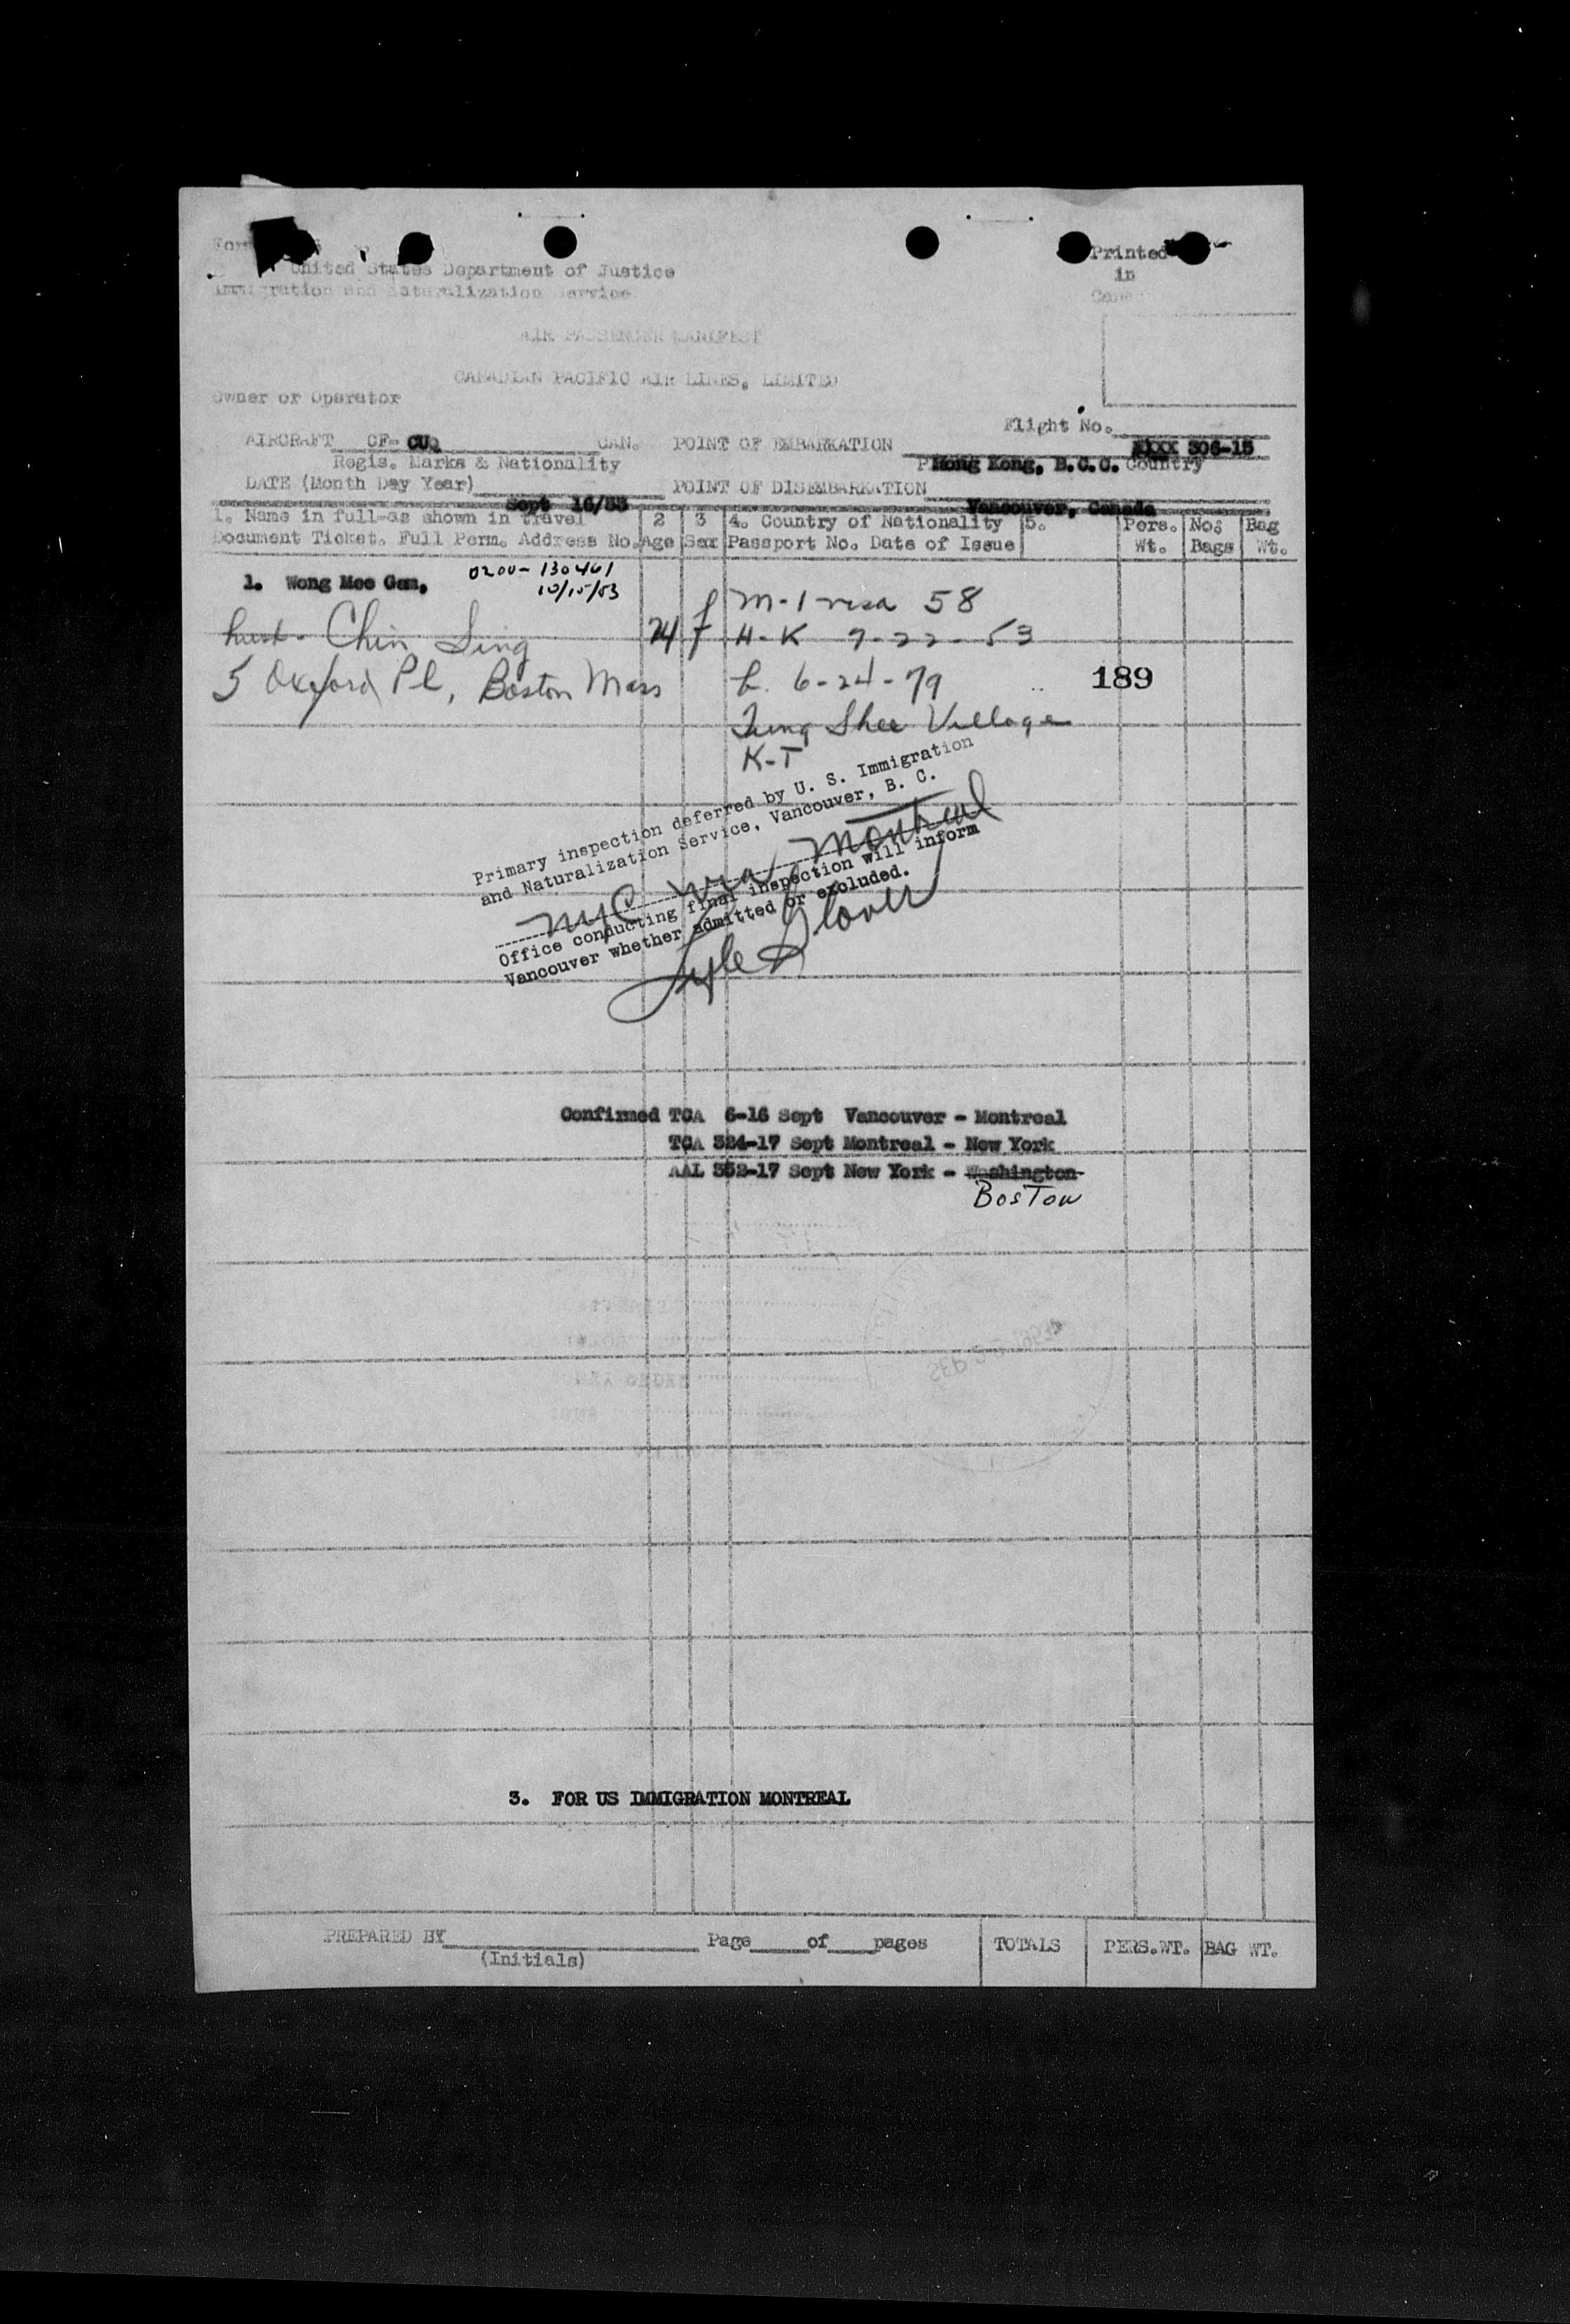 United States Department of Justice
Immigration and Naturalization Service
Printed
in
AIR PASSENGER MANIFEST
CANADIAN PACIFIC AIR LINES, LIMITED
Owner or Operator
Flight No. XXXX 306-15
AIRCRAFT CF- CUQ CAN. POINT OF EMBARKATION Hong Kong, B.C.C. Country
Regis. Marks & Nationality
DATE (Month Day Year) Sept 16/53 POINT OF DISEMBARKATION Vancouver, Canada
1. Name in full-as shown in travel 2 3 4. Country of Nationality 5. Pers. No. Bag
Document Ticket. Full Perm. Address No. Age Sex Passport No. Date of Issue Wt. Bags Wt.
1. Wong Mee Gam, 0200-130461
10/15/53
M-1 visa 58
husb. Chin Sing 74 f H-K 7-22-53
5 Oxford Pl, Boston Mass b. 6-24-79 189
Tung Shee Village
K-T
Primary inspection deferred by U. S. Immigration
and Naturalization Service, Vancouver, B. C.
NYC via Montreal
Office conducting final inspection will inform
Vancouver whether admitted or excluded.
Lyle Glover
Confirmed TCA 6-16 Sept Vancouver - Montreal
TCA 324-17 Sept Montreal - New York
AAL 352-17 Sept New York - Washington
Boston
3. FOR US IMMIGRATION MONTREAL
PREPARED BY Page of pages TOTALS PERS.WT. BAG WT.
(Initials)